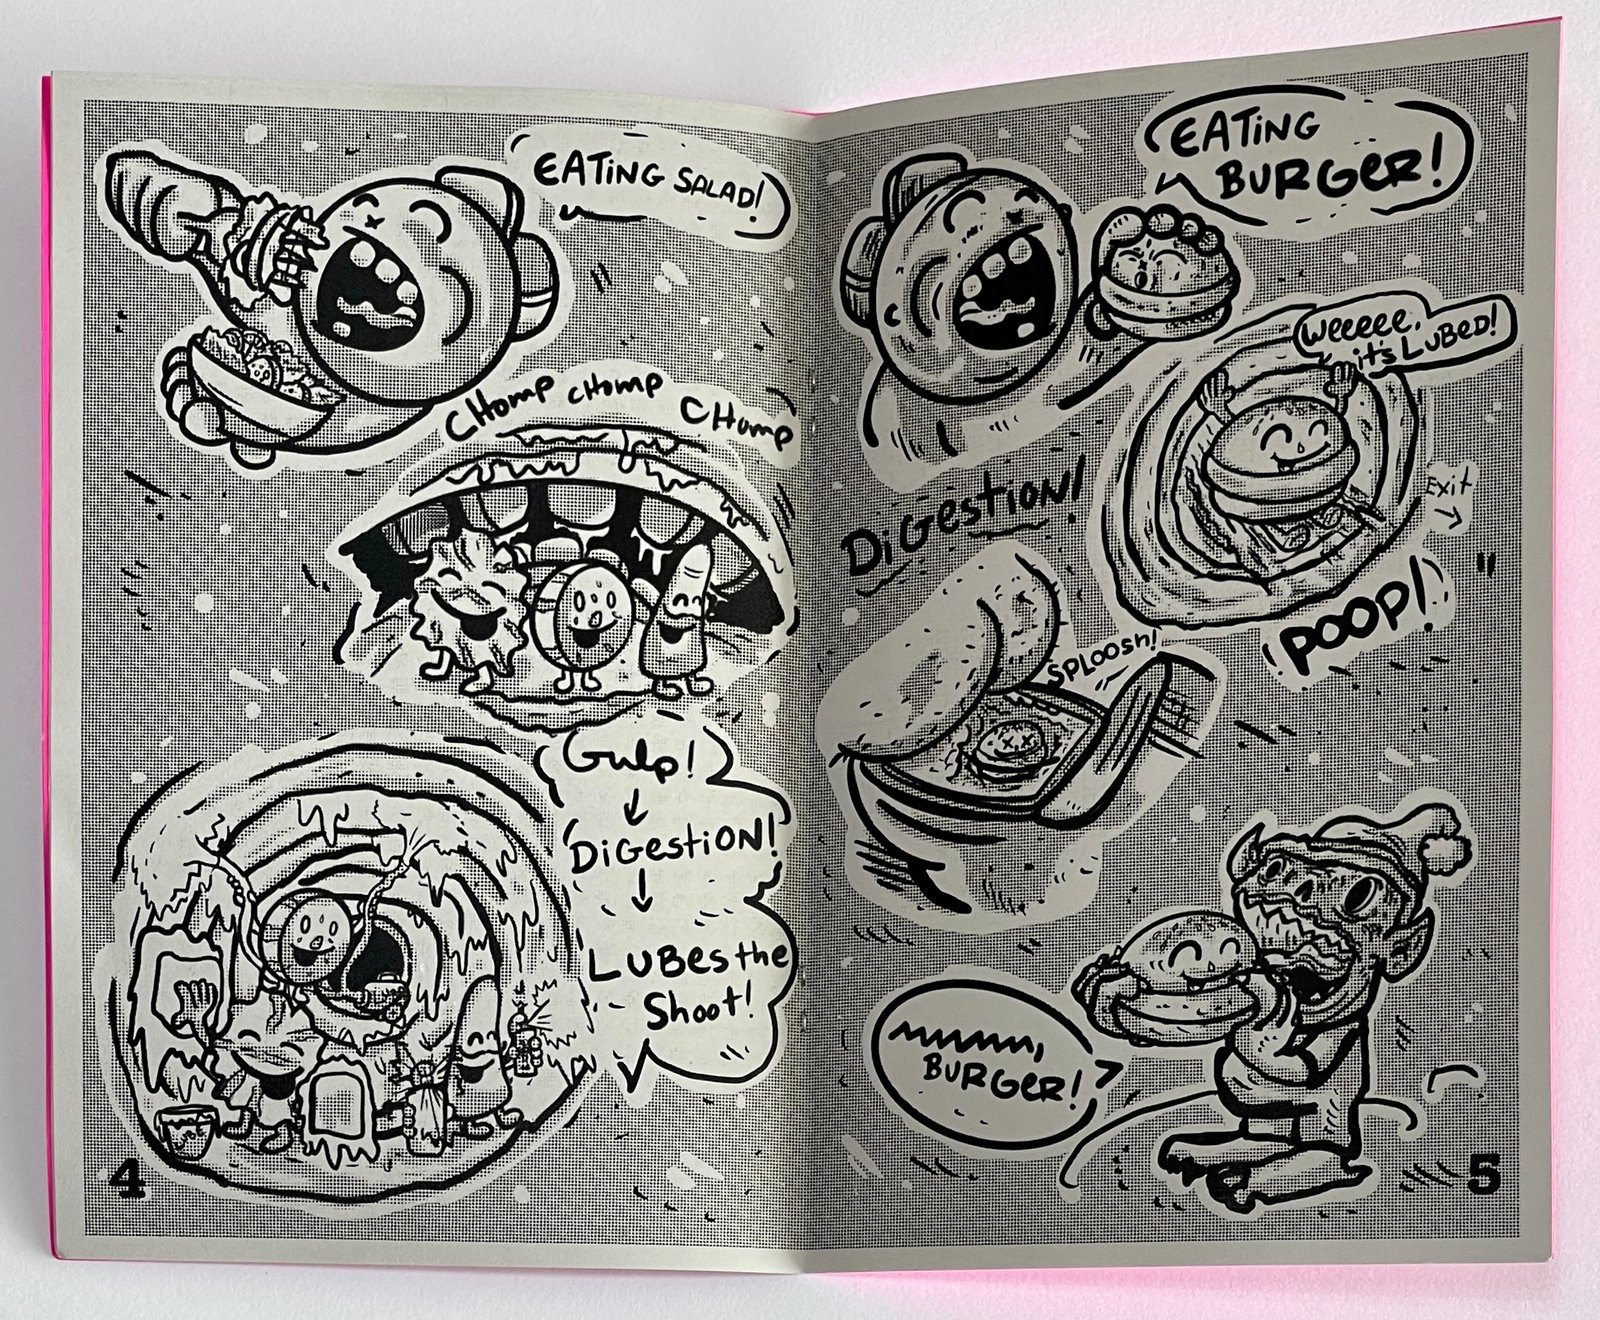 EATiNG SALAD!
CHOMP CHOMP CHOMP
Gulp!
DiGestiON!
LUBes the
Shoot!
LUBE
4
EATiNG
BURGeR!
weeeee,
it's LUBeD!
DiGestiON!
Exit
POOP!
SPLOOSH!
mmmmm,
BURGeR!
5